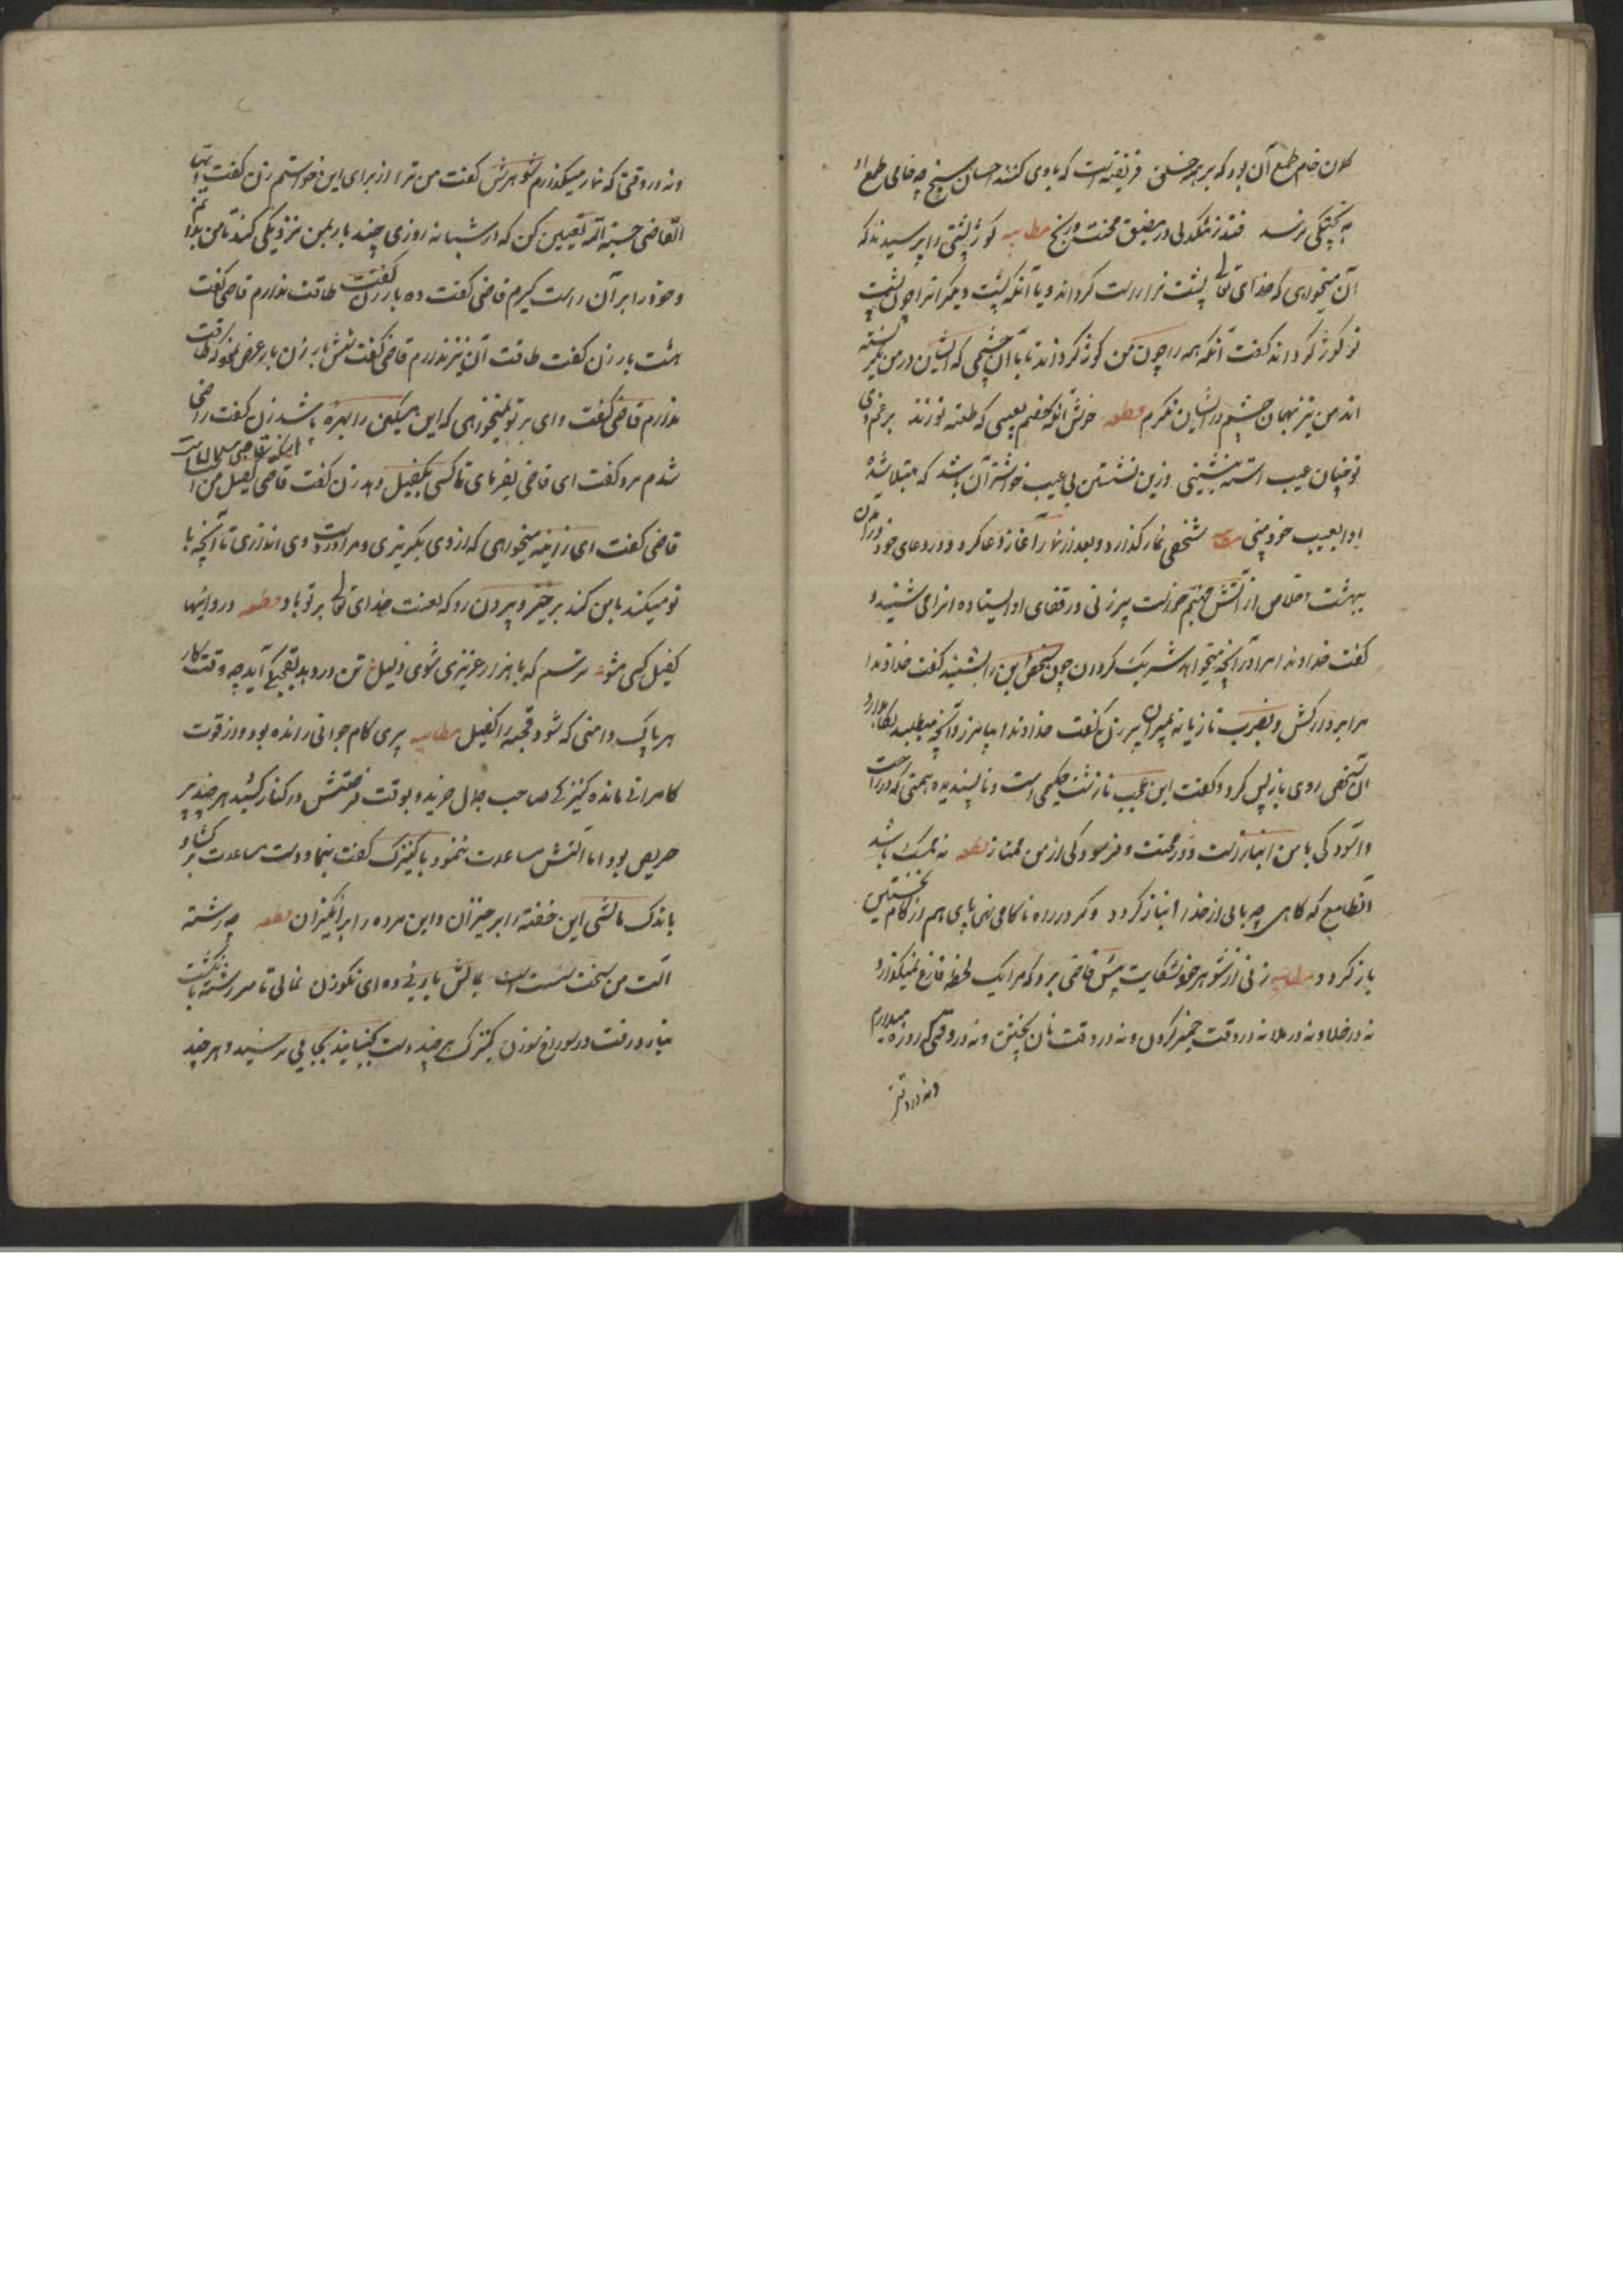 کلون خام طمع آن بود که بر همه خسان فریفته است که با وی کنند احسان هیچ چه خامی طمع او
به پختگی نرسد فتد ز تنگدلی در مضیق محنت و رنج مطایبه کوژ پشتی را پرسیدند که
آن میخواهی که خدای تعالی پشت ترا راست گرداند و یا آنکه پشت دیگرانرا چون پشت
تو کوژ گرداند گفت آنکه همه را چون من کوژ گرداند تا با آن چشمی که ایشان در من نگریسته
اند من نیز بهمان چشم در ایشان نگرم قطعه خوش آنکه خصم بعیبی که طعنه تو زند برغم وی
تو چنان عیب رسته بنشینی وزین نشستن بی عیب خوشتر آن باشد که مبتلا شده
او را بعیب خود بینی مطایبه شخصی نماز گذارد و بعد از نماز آغاز دعا کرد و در دعای خود در آمدن
بهشت خلاص از آتش جهنم خواست پیرزنی در قفای او ایستاده انرا می شنید و
گفت خداوندا مرا در آنچه میخواهد شریک گردان چون شخص این را بشنید گفت خداوندا
مرا بردار کش و بضرب تازیانه بمیران پیرزن گفت خداوندا بیامرز و آنچه میطلبد نگاهدار
آن شخص روی باز پس کرد و گفت این عجب نازشت حکمی است و ناپسندیده قسمتی که در راحت
و آسودگی با من انباز است و در محنت و فرسودگی از من ممتاز قطعه نه نیک باشد
آن طامع که گاهی چه یابی از خدا انباز گردد وگر در راه ناکامی نهی پای هم از گام نخستین
باز گردد مطایبه زنی از شوهر خود شکایت پیش قاضی برد که مرا یک لحظه فارغ نمیگذارد
نه در خلا و نه در ملا نه در وقت خمیر کردن و نه در وقت نان پختن و نه در وقتی که روزه میدارم
و نه در وقتی
و نه در وقتی که نماز میگذارم شوهرش گفت من ترا از برای این خواستم زن گفت ایها
القاضی حسبة لله تعیین کن که در شبانه روزی چند بار بمن نزدیکی کند تا من بدانم
و خود را بر آن راست گیرم قاضی گفت ده بار زن گفت طاقت ندارم قاضی گفت
هشت بار زن گفت طاقت آن نیز ندارم قاضی گفت شش بار زن باز عرض نمود که طاقت
ندارم قاضی گفت وای بر تو نمیخواهی که این مسکین را بهره باشد زن گفت راضی
شدم مرد گفت ای قاضی بفرمای تا کسی کفیل دهد زن گفت قاضی کفیل من است
قاضی گفت ای زانیه میخواهی که از وی بگریزی و مرا در دست وی اندازی تا آنچه با
تو میکند با من کند برخیز و بیرون رو که لعنت خدای تعالی بر تو باد قطعه در وامها
کفیل کسی مشو ترسم که با هزار عزیزی شوی ذلیل تن در دهد بقحبگی آید چو وقت کار
هر پاک دامنی که شود قحبه را کفیل مطایبه پیری کام جوانی رانده بود و از قوت
کامرانی مانده کنیزکی صاحب جمال خرید و بوقت فرصتش در کنار کشید هر چند پیر
حریص بود اما آلتش مساعدت ننمود با کنیزک گفت بنما و دست مساعدت بر گشاو
باندک مالشی این خفته را برخیزان و این مرده را برانگیزان قطعه چو رشته
آلت من سخت سست است بمالش یاریی ده ای نکو زن نمالی تا سر رشته بانگشت
نیارد رفت در سوراخ سوزن کنیزک هر چند دست جنبانید بجایی نرسید و هر چند